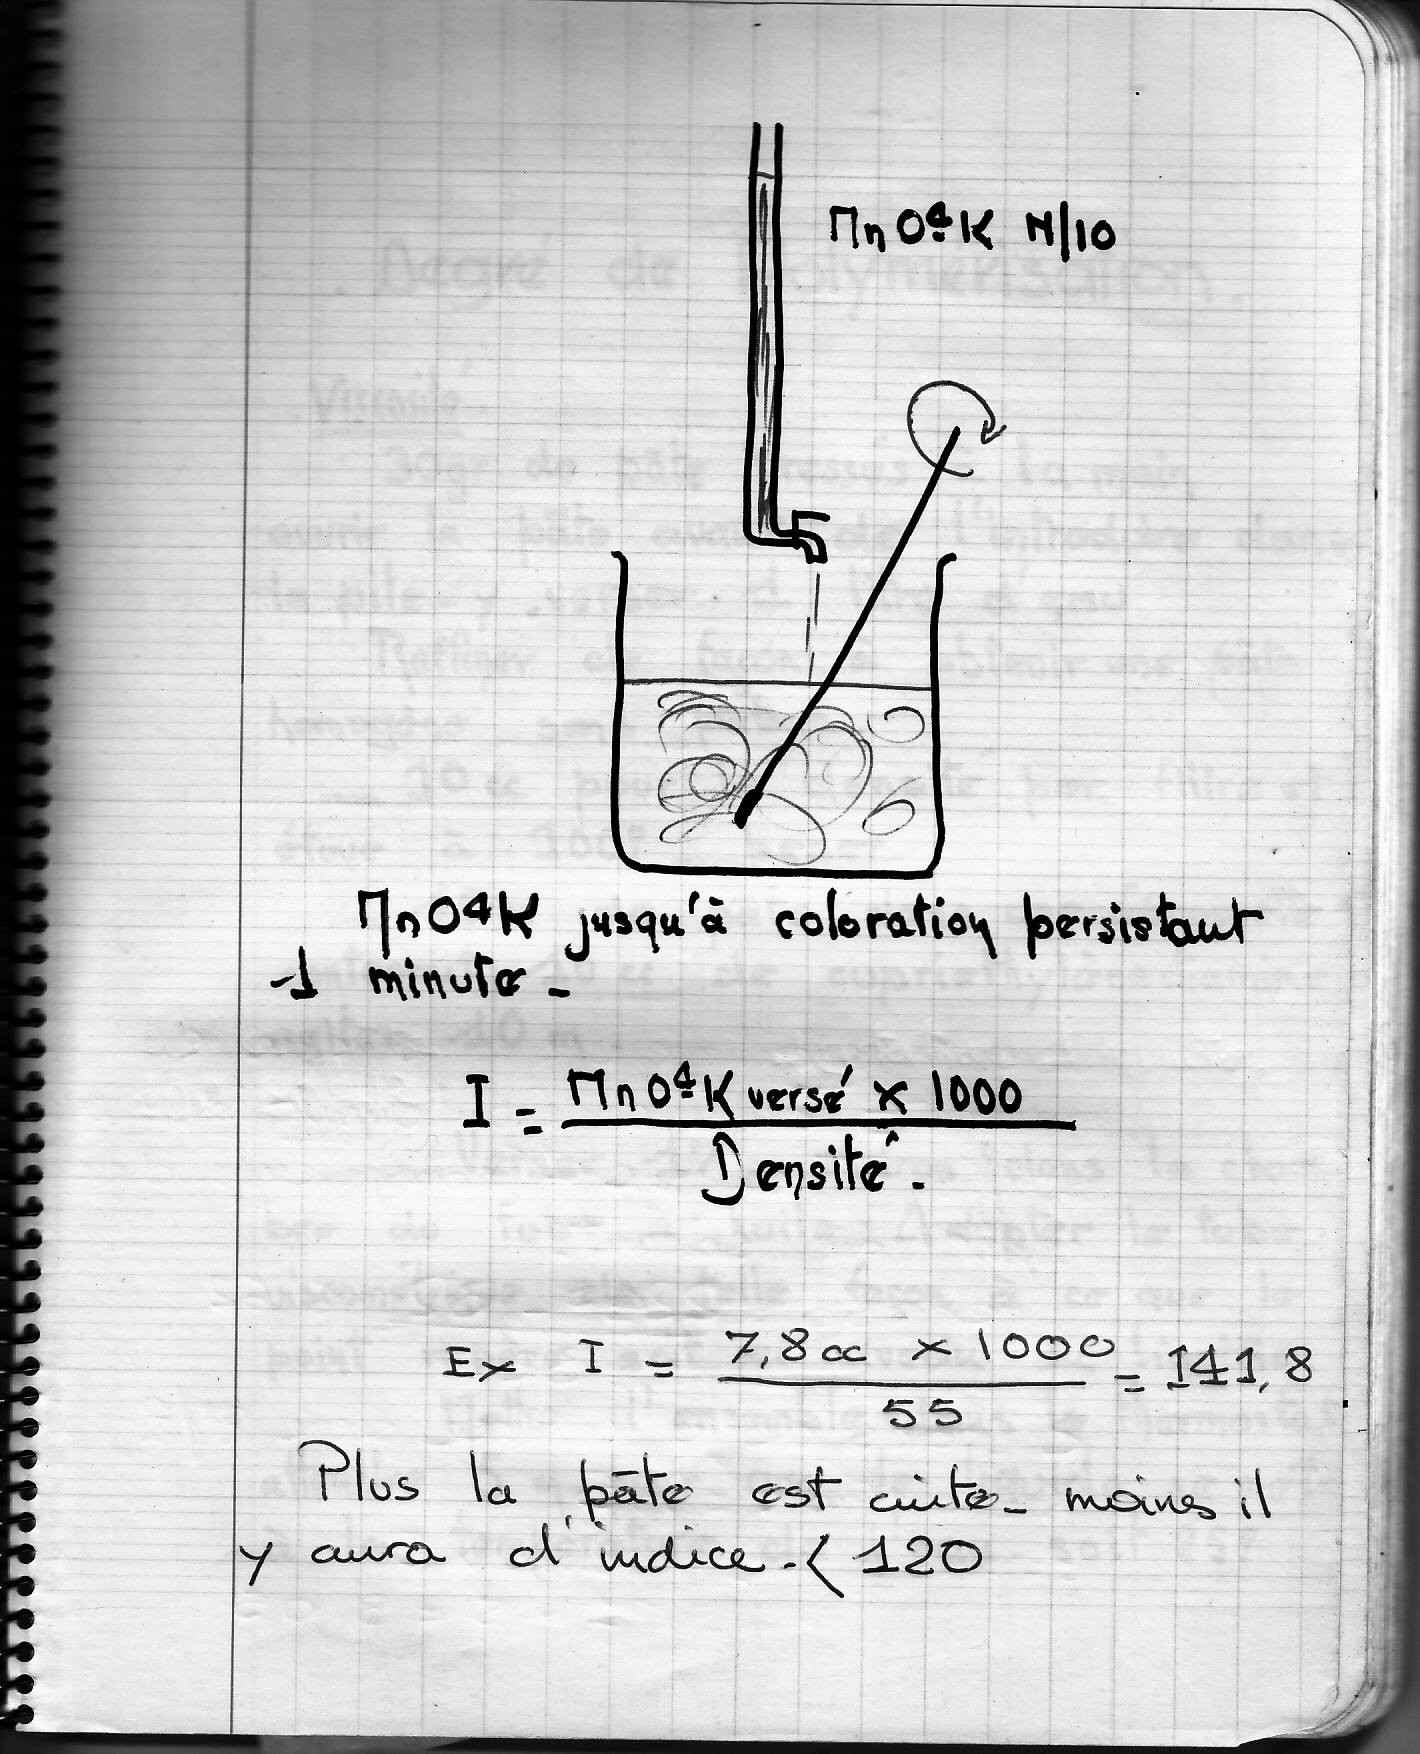 MnO4K N/10
MnO4K jusqu'à coloration persistant
1 minute -
I = MnO4K versé x 1000
Densité.
Ex I = 7,8 cc x 1000 = 141,8
55
Plus la pâte est cuite - moins il
y aura d'indice. < 120